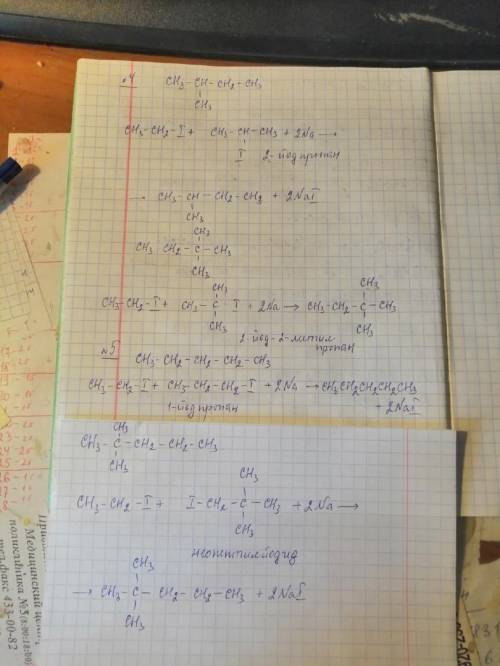 №4 CH₃-CH-CH₂-CH₃
CH₃
CH₃-CH₂-I + CH₃-CH-CH₃ + 2Na →
I 2-йодпропан
→ CH₃-CH-CH₂-CH₃ + 2NaI
CH₃
CH₃
CH₃ CH₂-C-CH₃
CH₃
CH₃
CH₃-CH₂-I + CH₃-C-I + 2Na → CH₃-CH₂-C-CH₃
CH₃
CH₃
CH₃
2-йод-2-метил
пропан
№5 CH₃-CH₂-CH₂-CH₂-CH₃
CH₃-CH₂-I + CH₃-CH₂-CH₂-I + 2Na → CH₃CH₂CH₂CH₂CH₃
1-йодпропан + 2NaI
CH₃
CH₃-C-CH₂-CH₂-CH₃
CH₃
CH₃
CH₃-CH₂-I + I-CH₂-C-CH₃ + 2Na →
CH₃
неопентилйодид
CH₃
→ CH₃-C-CH₂-CH₂-CH₃ + 2NaI
CH₃
Медицинский
поликлиника №5 (8:00:18:00)
тел.факс 433-00-82